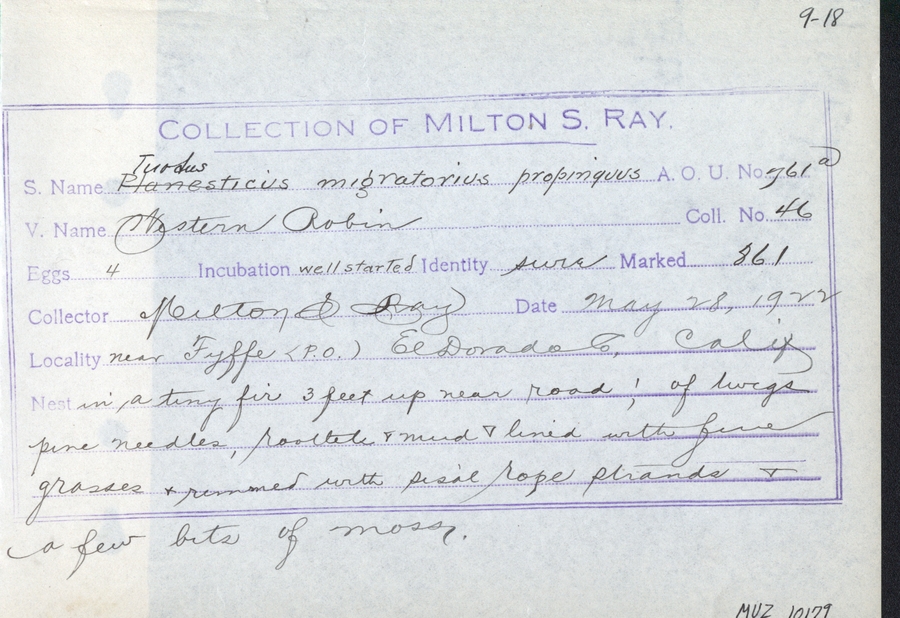 9-18
COLLECTION OF MILTON S. RAY.
Turdus
S. Name Planesticus migratorius propinquus A. O. U. No. 761a
V. Name Western Robin Coll. No. 46
Eggs 4 Incubation well started Identity sure Marked 361
Collector Milton S Ray Date May 28, 1922
Locality near Fyffe (P.O.) El Dorado Co, Calif
Nest in a tiny fir 3 feet up near road; of twigs
pine needles, rootlets & mud & lined with fine
grasses & rimmed with sisal rope strands &
a few bits of moss.
MVZ 10179